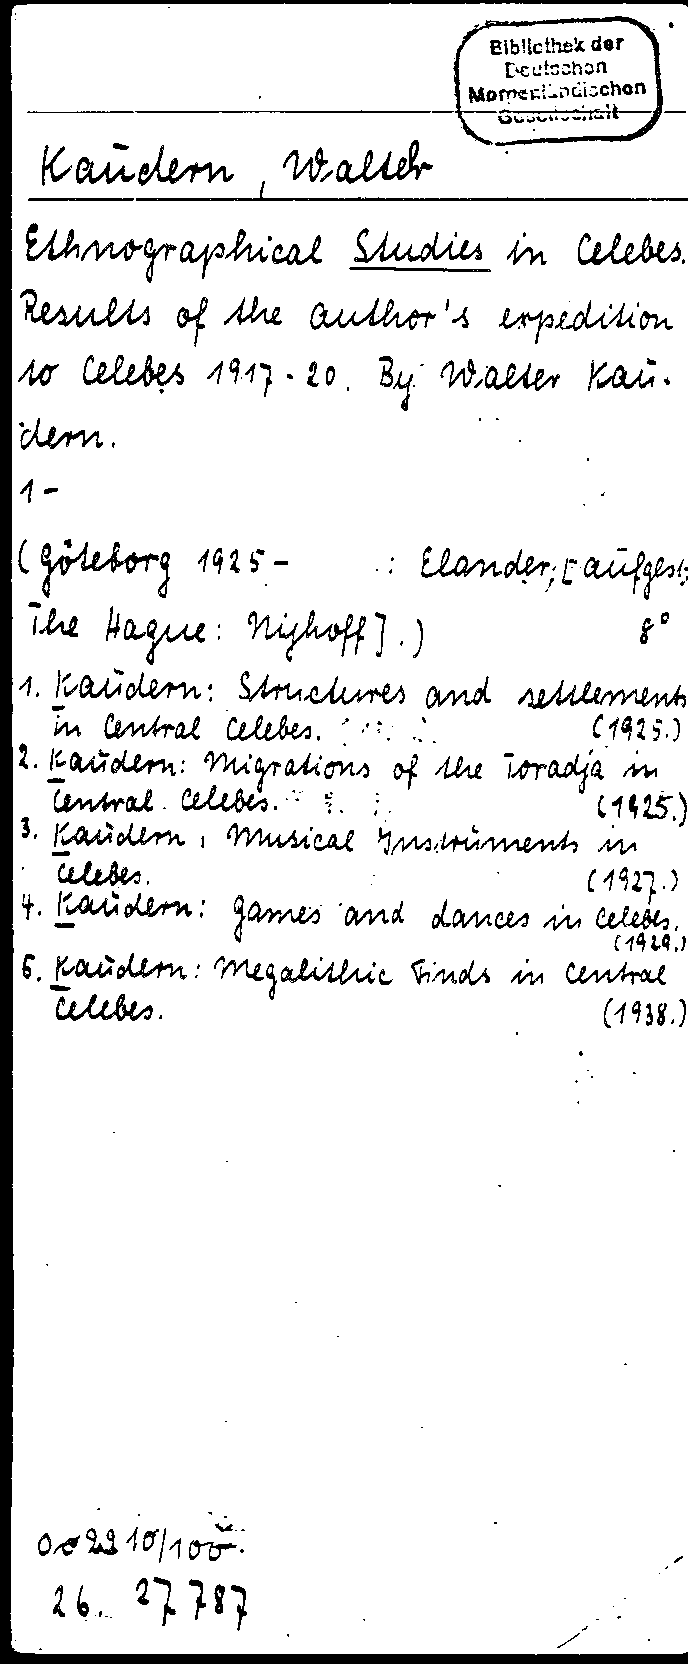 Bibliothek der
Deutschen
Morgenländischen
Gesellschaft
Kaudern, Walter
Ethnographical Studies in Celebes.
Results of the author's expedition
to Celebes 1917-20. By Walter Kau-
dern.
1-
(Göteborg 1925- : Elander; [aufgest.;
The Hague: Nijhoff].) 8°
1. Kaudern: Structures and settlements
in Central Celebes. (1925.)
2. Kaudern: Migrations of the Toradja in
Central Celebes. (1925.)
3. Kaudern, Musical Instruments in
Celebes. (1927.)
4. Kaudern: games and dances in Celebes.
(1929.)
5. Kaudern: Megalithic Finds in Central
Celebes. (1938.)
26. 27787